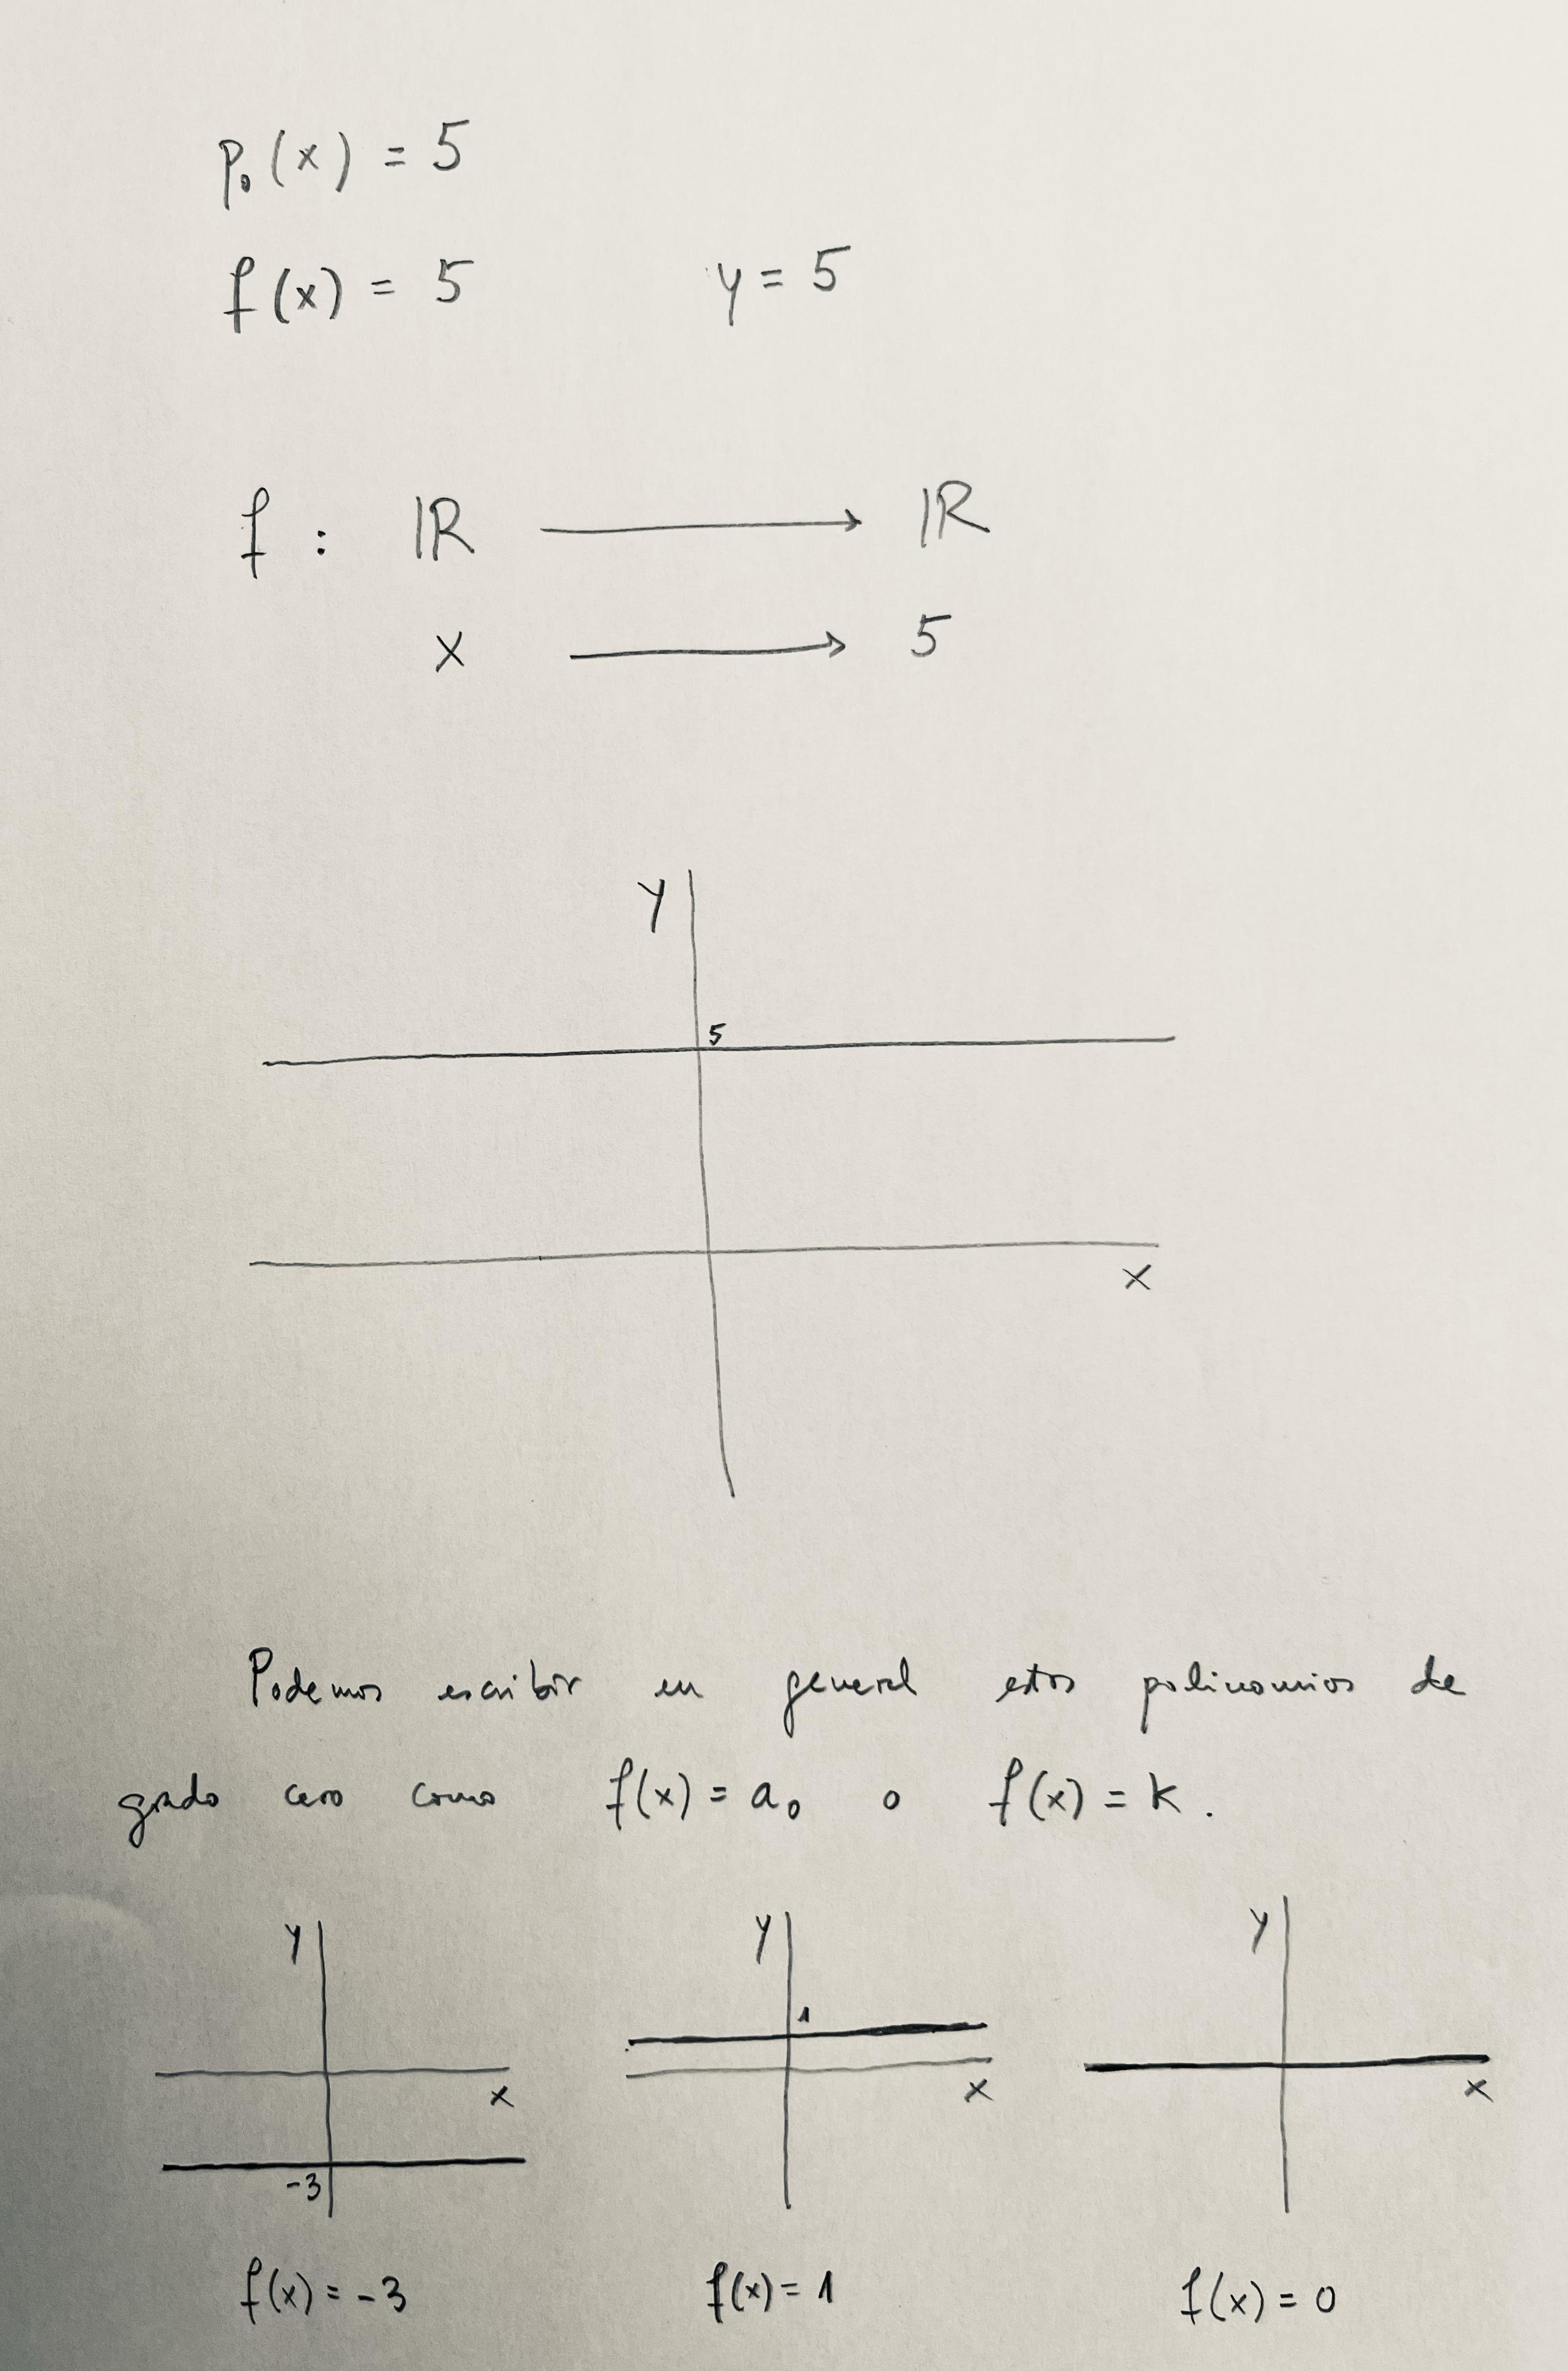 p₀(x) = 5
f(x) = 5 y = 5
f : ℝ ⟶ ℝ
x ⟶ 5
y
5
x
Podemos escribir en general estos polinomios de
grado cero como f(x) = a₀ o f(x) = k .
y y y
1
x x x
-3
f(x) = -3 f(x) = 1 f(x) = 0